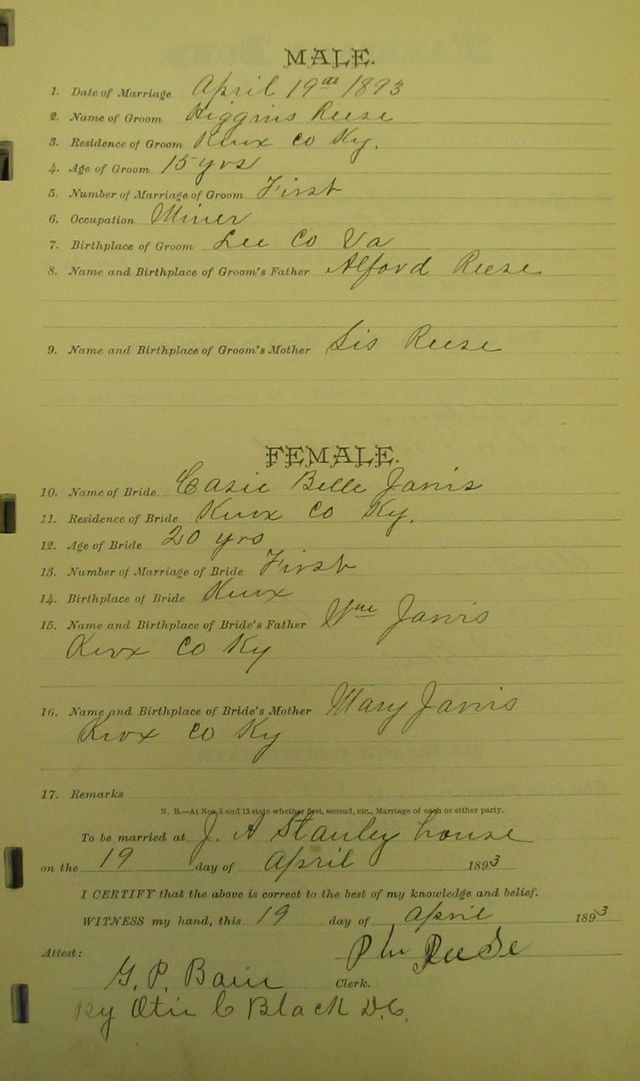 MALE.
1. Date of Marriage April 19th 1893
2. Name of Groom Higgins Reese
3. Residence of Groom Knox Co Ky.
4. Age of Groom 15 yrs
5. Number of Marriage of Groom First
6. Occupation Miner
7. Birthplace of Groom Lee Co Va
8. Name and Birthplace of Groom's Father Alford Reese
9. Name and Birthplace of Groom's Mother Lis Reese
FEMALE.
10. Name of Bride Casie Belle Jarvis
11. Residence of Bride Knox Co Ky.
12. Age of Bride 20 yrs
13. Number of Marriage of Bride First
14. Birthplace of Bride Knox
15. Name and Birthplace of Bride's Father Wm Jarvis
Knox Co Ky
16. Name and Birthplace of Bride's Mother Mary Jarvis
Knox Co Ky
17. Remarks
N. B.—At Nos. 5 and 13 state whether first, second, etc., Marriage of each or either party.
To be married at J. A Stanley house
on the 19 day of April 1893
I CERTIFY that the above is correct to the best of my knowledge and belief.
WITNESS my hand, this 19 day of April 1893
Attest: Reese
G. P. Bain Clerk.
By Otis C Black D.C.